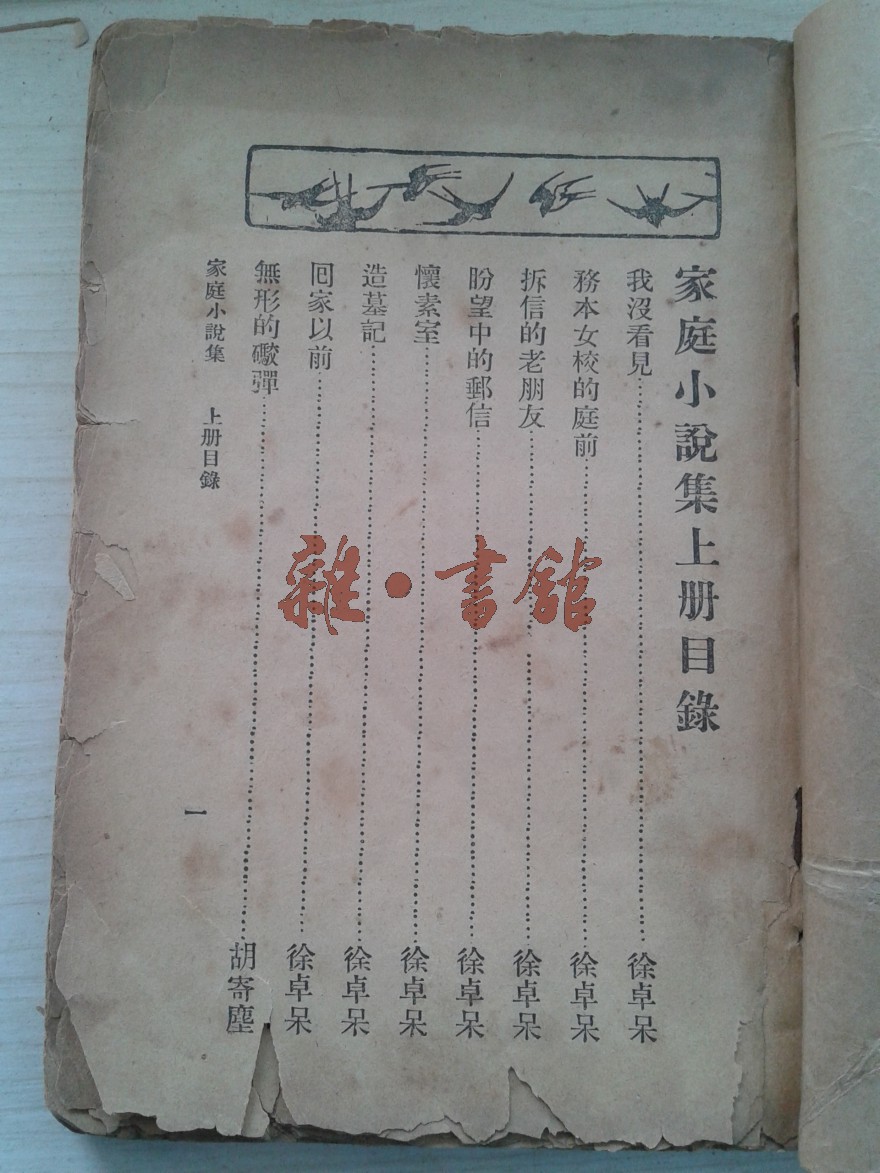 家庭小說集上册目錄
我沒看見……徐卓呆
務本女校的庭前……徐卓呆
拆信的老朋友……徐卓呆
盼望中的郵信……徐卓呆
懷素室……徐卓呆
造墓記……徐卓呆
囘家以前……徐卓呆
無形的礮彈……胡寄塵
家庭小說集 上册目錄
一
雜·書館